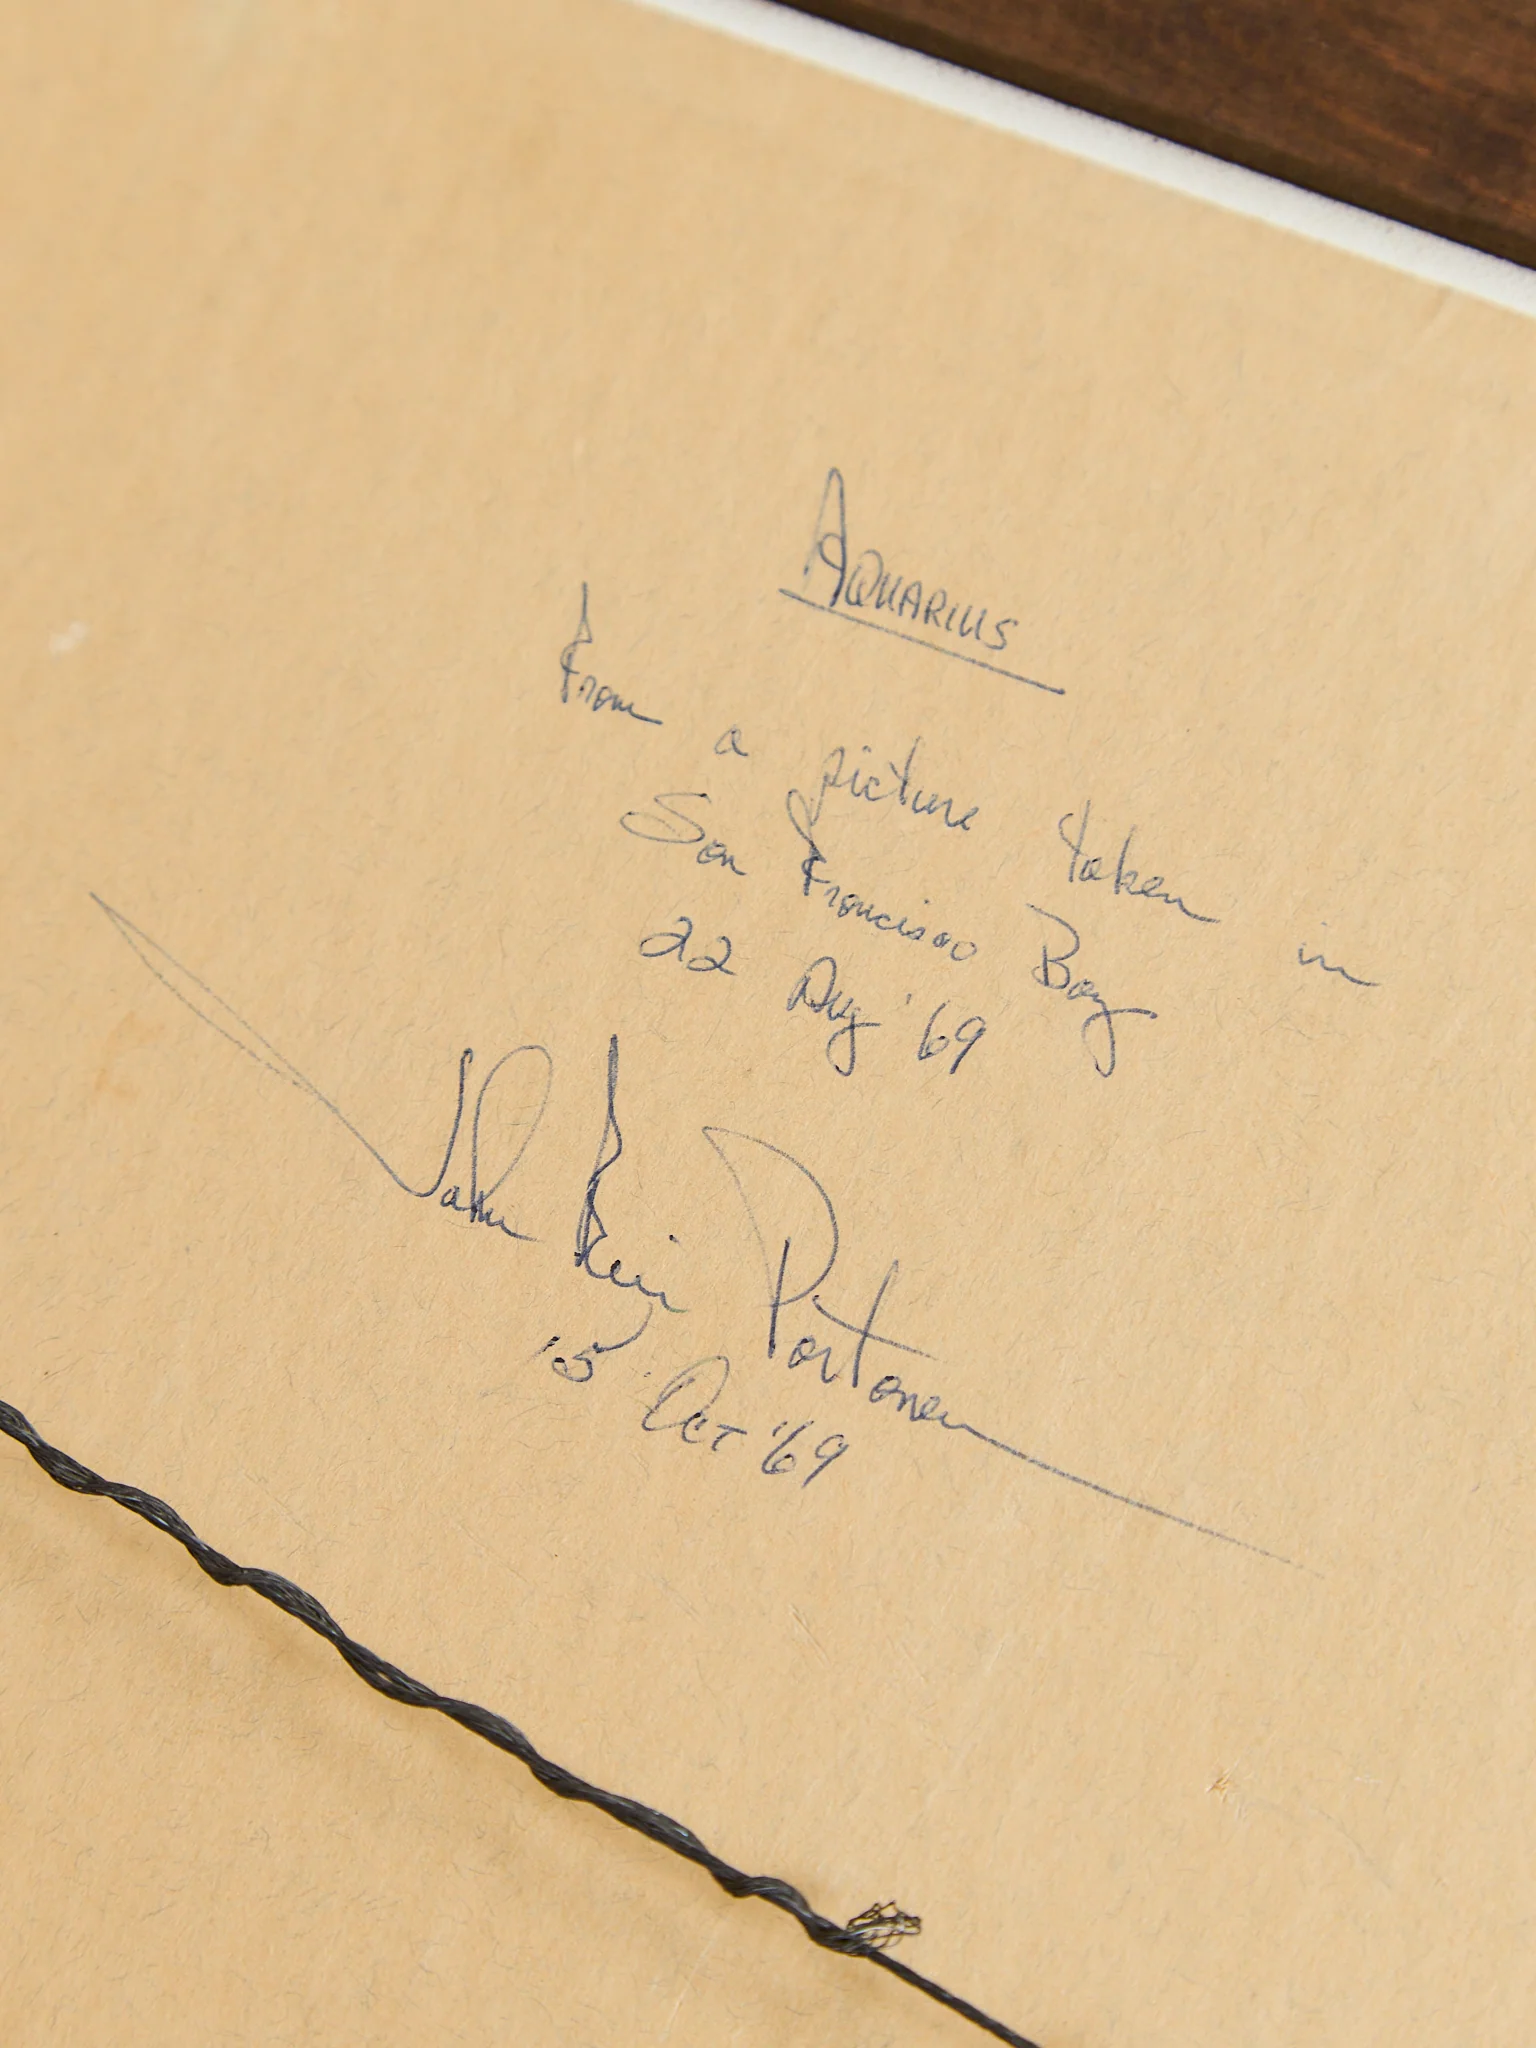 AQUARIUS
From a picture taken in
San Francisco Bay
22 Aug '69
John Portanen
15 Oct '69